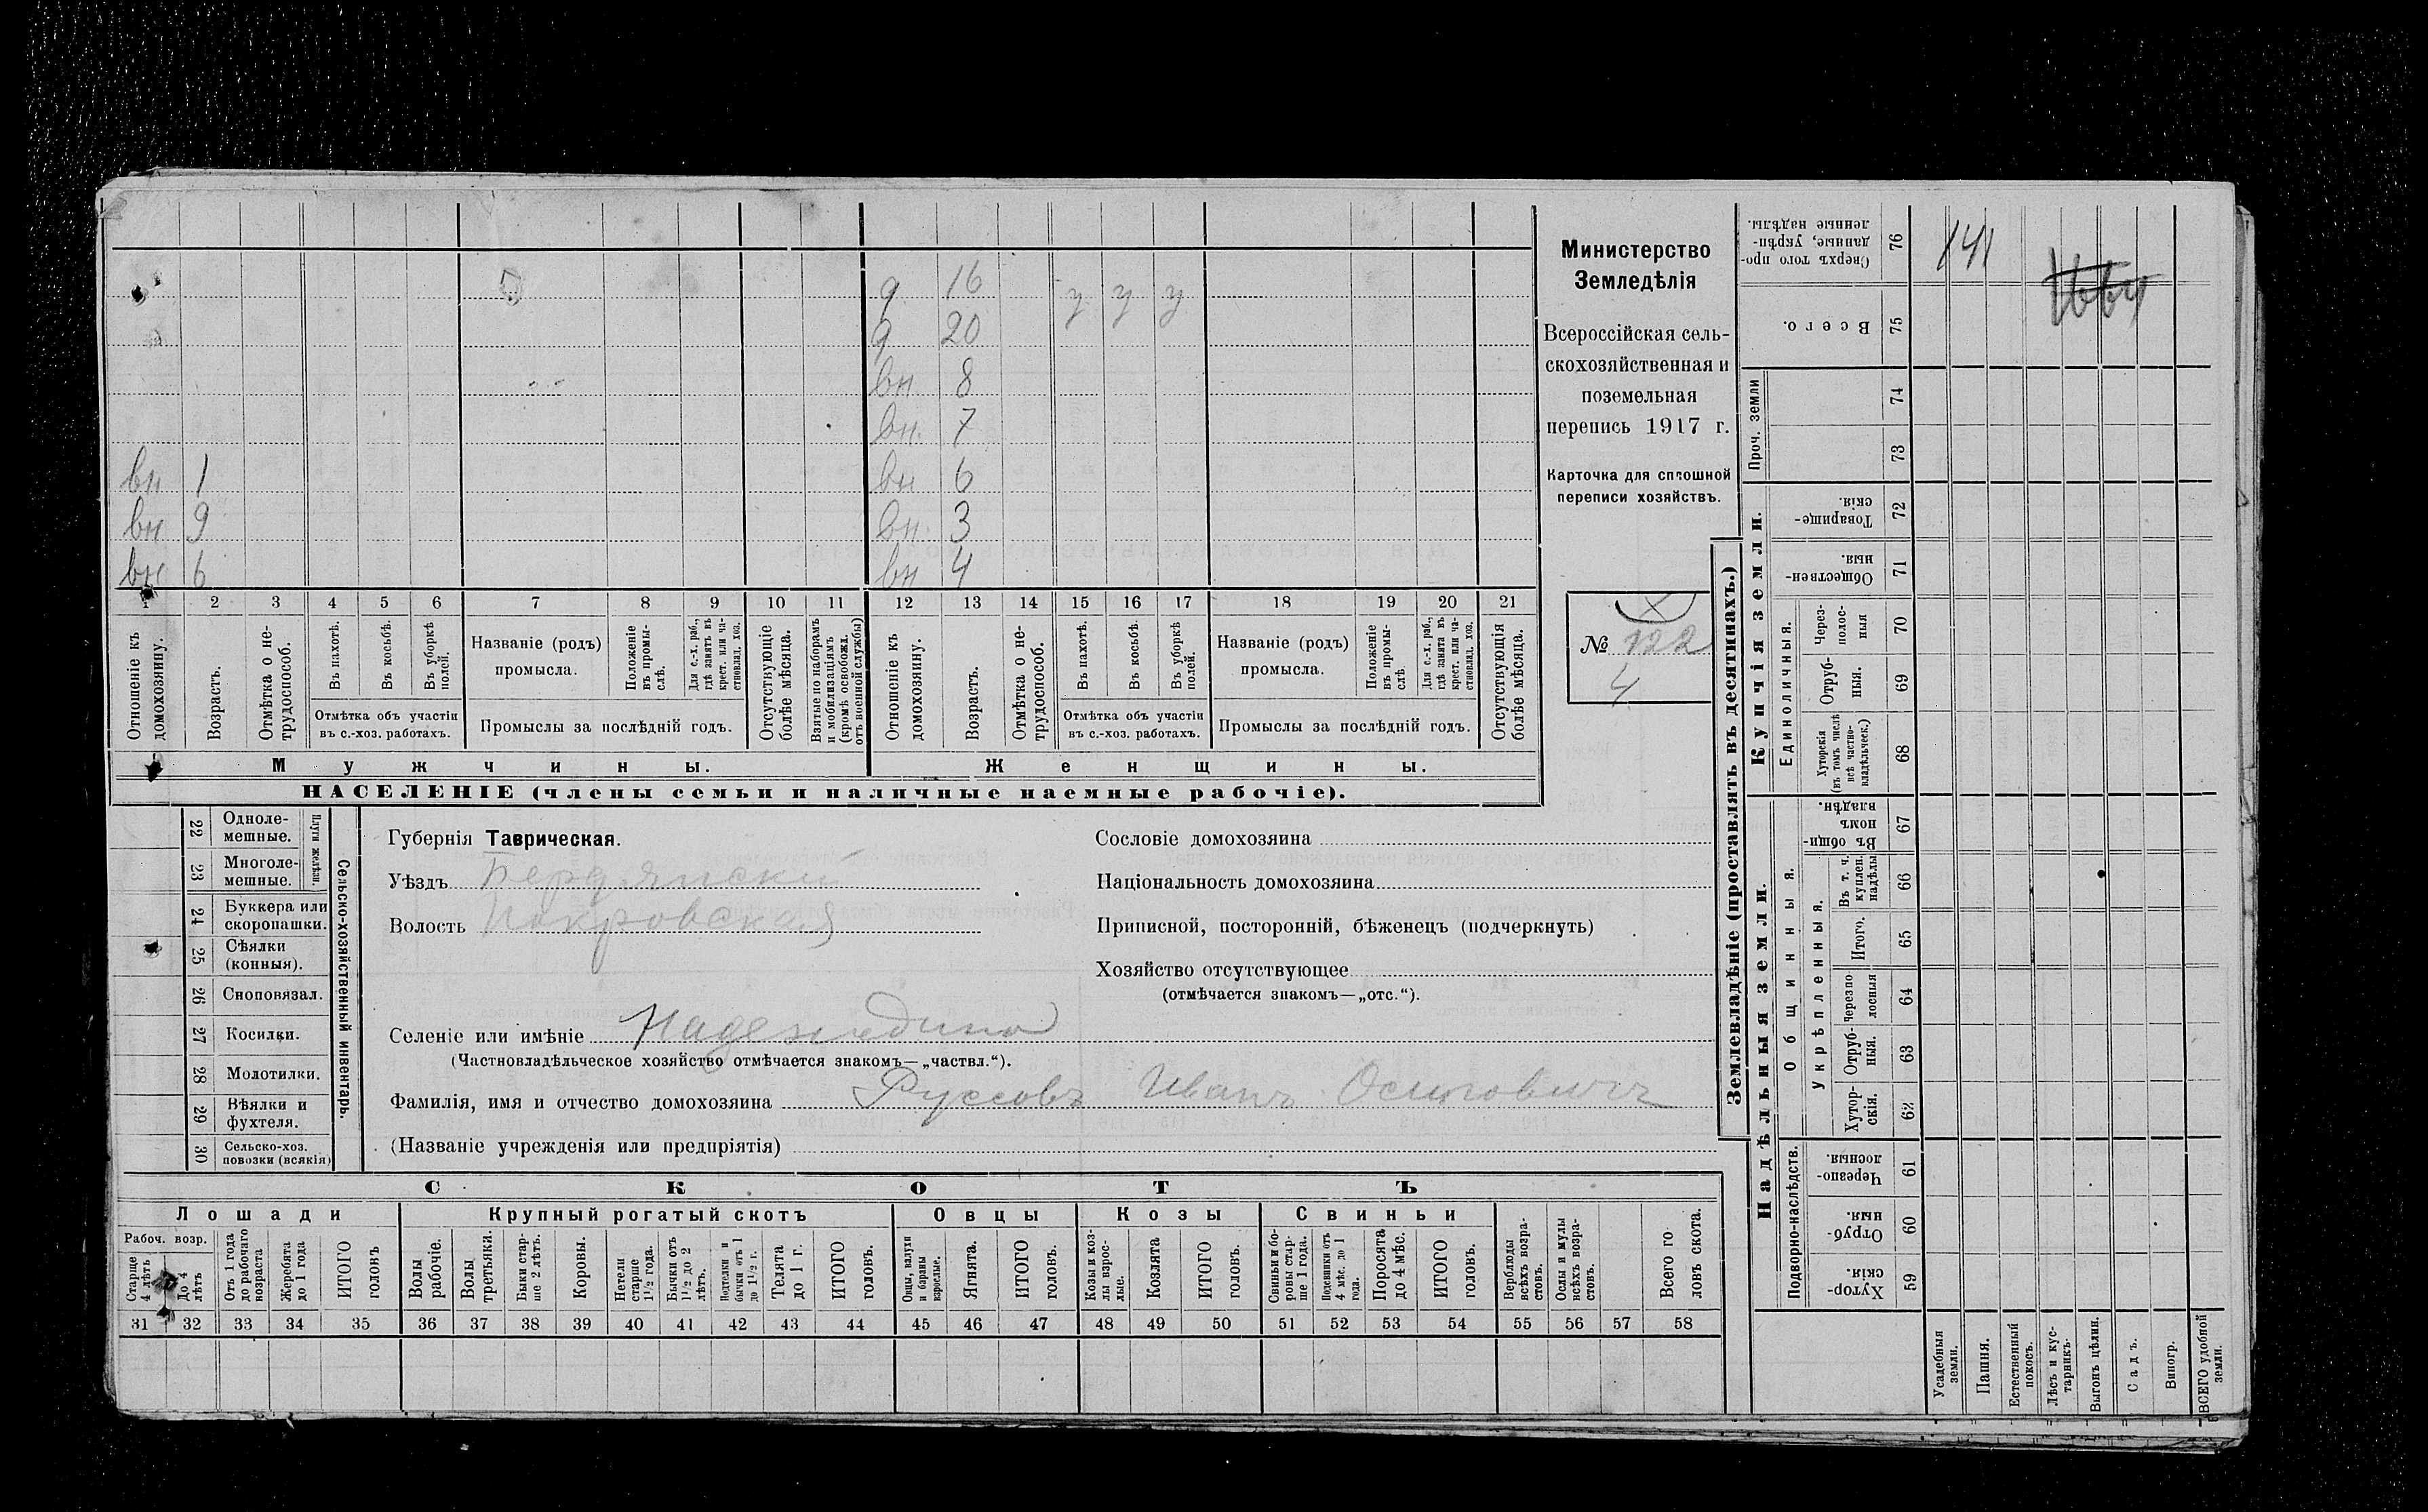 д 16 у у у
д 20
вн. 8
вн. 7
вн 1 вн 6
вн 9 вн. 3
вн 6 вн 4
1 2 3 4 5 6 7 8 9 10 11 12 13 14 15 16 17 18 19 20 21
Отношеніе къ домохозяину.
Возрастъ.
Отмѣтка о нетрудоспособ.
Въ пахотѣ.
Въ косьбѣ.
Въ уборкѣ полей.
Отмѣтка объ участіи
въ с.-хоз. работахъ.
Названіе (родъ)
промысла.
Положеніе въ промыслѣ.
Для с.-х. раб., гдѣ занятъ въ крест. или частновлад. хоз.
Промыслы за послѣдній годъ.
Отсутствующіе болѣе мѣсяца.
Взятые по наборамъ и мобилизаціямъ (кромѣ освобожд. отъ военной службы)
Отношеніе къ домохозяину.
Возрастъ.
Отмѣтка о нетрудоспособ.
Въ пахотѣ.
Въ косьбѣ.
Въ уборкѣ полей.
Отмѣтка объ участіи
въ с.-хоз. работахъ.
Названіе (родъ)
промысла.
Положеніе въ промыслѣ.
Для с.-х. раб., гдѣ занята въ крест. или частновлад. хоз.
Промыслы за послѣдній годъ.
Отсутствующія болѣе мѣсяца.
Мужчины. Женщины.
НАСЕЛЕНІЕ (члены семьи и наличные наемные рабочіе).
Министерство
Земледѣлія
Всероссійская сель-
скохозяйственная и
поземельная
перепись 1917 г.
Карточка для сплошной
переписи хозяйствъ.
№ 122
4
22 Однолемешные.
23 Многолемешные.
Плуги желѣзн.
24 Буккера или скоропашки.
25 Сѣялки (конныя).
26 Сноповязал.
27 Косилки.
28 Молотилки.
29 Вѣялки и фухтеля.
30 Сельско-хоз. повозки (всякія)
Сельско-хозяйственный инвентарь.
Губернія Таврическая.
Уѣздъ Бердянскій
Волость Покровская
Селеніе или имѣніе Надеждино
(Частновладѣльческое хозяйство отмѣчается знакомъ—„частвл.“).
Фамилія, имя и отчество домохозяина Руссовъ Иванъ Осиповичъ
(Названіе учрежденія или предпріятія)
Сословіе домохозяина
Національность домохозяина
Приписной, посторонній, бѣженецъ (подчеркнуть)
Хозяйство отсутствующее
(отмѣчается знакомъ—„отс.“).
СКОТЪ
Лошади Крупный рогатый скотъ Овцы Козы Свиньи
Рабоч. возр.
Старше 4 лѣтъ
До 4 лѣтъ
Отъ 1 года до рабочаго возраста
Жеребята до 1 года
ИТОГО головъ
Волы рабочіе.
Волы третьяки.
Быки старше 2 лѣтъ.
Коровы.
Нетели старше 1½ года.
Бычки отъ 1½ до 2 лѣтъ.
Подтелки и бычки отъ 1 до 1½ г.
Телята до 1 г.
ИТОГО головъ.
Овцы, валухи и бараны взрослые.
Ягнята.
ИТОГО головъ.
Козы и козлы взрослые.
Козлята
ИТОГО головъ.
Свиньи и боровы старше 1 года.
Подсвинки отъ 4 мѣс. до 1 года.
Поросята до 4 мѣс.
ИТОГО головъ.
Верблюды всѣхъ возрастовъ.
Ослы и мулы всѣхъ возрастовъ.
Всего головъ скота.
31 32 33 34 35 36 37 38 39 40 41 42 43 44 45 46 47 48 49 50 51 52 53 54 55 56 57 58
Землевладѣніе (проставлять въ десятинахъ.)
Надѣльныя земли. Купчія земли. Проч. земли
Подворно-наслѣдств.
Общинныя.
Укрѣпленныя.
Единоличныя.
Сверхъ того проданные, укрѣпленные надѣлы. 76
Всего. 75
74
73
Товарищескія. 72
Общественныя. 71
Черезполосныя 70
Отрубныя. 69
Хуторскія (въ томъ числѣ всѣ частновладѣльческ.) 68
Въ общинномъ владѣн. 67
Въ т. ч. куплен. надѣлы 66
Итого. 65
Черезполосныя 64
Отрубныя. 63
Хуторскія. 62
Черезполосныя. 61
Отрубныя. 60
Хуторскія 59
141
1664
Усадебныя земли.
Пашня.
Естественный покосъ.
Лѣсъ и кустарникъ.
Выгонъ цѣлин.
Садъ.
Виногр.
ВСЕГО удобной земли.